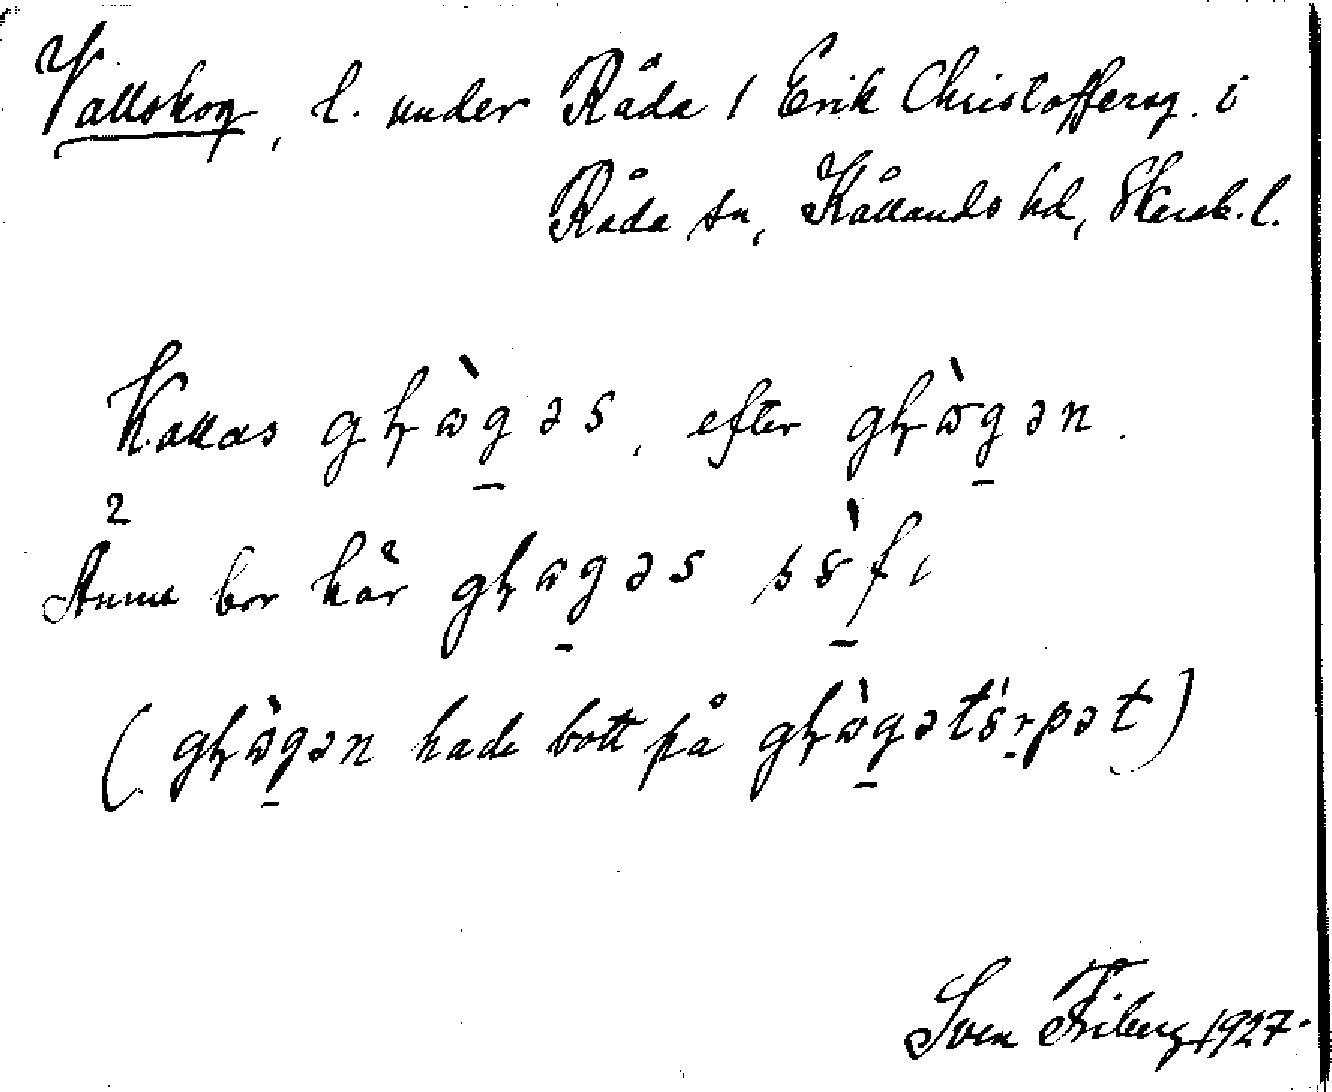 Vallskog, l. under Råda 1 Erik Christoffersg. i
Råda sn, Kållands hd, Skarab. l.
Kallas gɧɷ̀gəs, efter gɧɷ̀gən.
2
Ännu bor här gɧɷgəs sòfı
(gɧɷ̀gən hade bott på gɧɷ̀gətórpət)
Sven Friberg 1927.